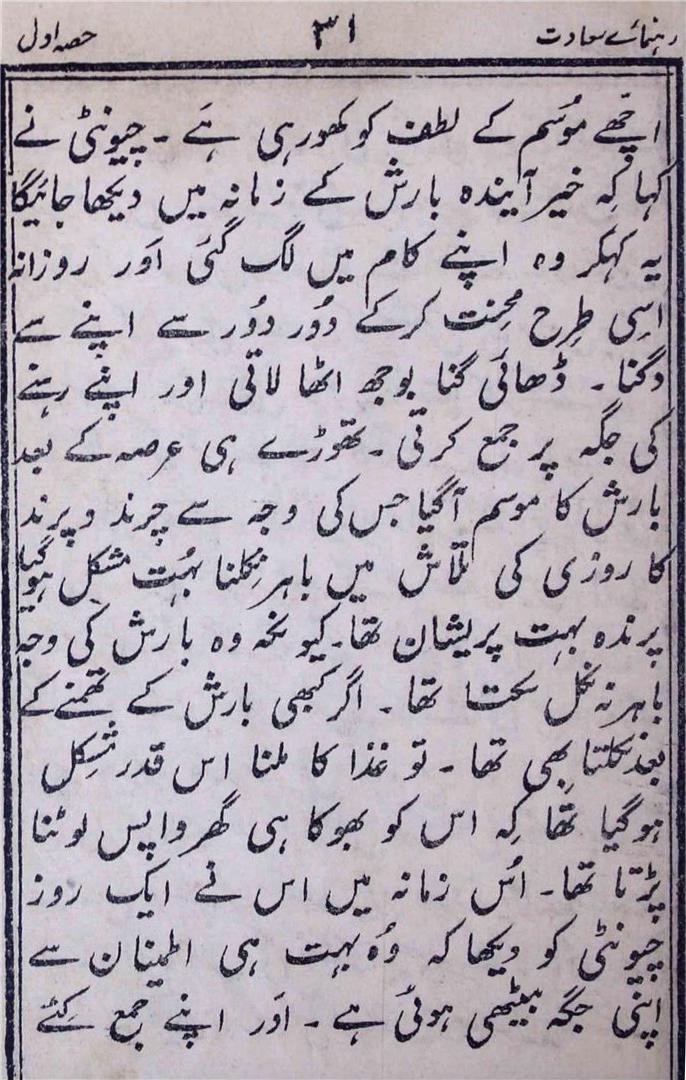 رہنمائے سعادت ۳۱ حصہ اول
اچھے موسم کے لطف کو کھو رہی ہے ۔ چیونٹی نے
کہا کہ خیر آیندہ بارش کے زمانہ میں دیکھا جائیگا
یہ کہکر وہ اپنے کام میں لگ گئی اور روزانہ
اسی طرح محنت کرکے دور دور سے اپنے سے
دگنا ۔ ڈھائی گنا بوجھ اٹھا لاتی اور اپنے رہنے
کی جگہ پر جمع کرتی ۔ تھوڑے ہی عرصہ کے بعد
بارش کا موسم آگیا جس کی وجہ سے چرند و پرند
کا روزی کی تلاش میں باہر نکلنا بہت مشکل ہوگیا
پرندہ بہت پریشان تھا ۔ کیونکہ وہ بارش کی وجہ
باہر نہ نکل سکتا تھا ۔ اگر کبھی بارش کے تھمنے کے
بعد نکلتا بھی تھا ۔ تو غذا کا ملنا اس قدر مشکل
ہوگیا تھا کہ اس کو بھوکا ہی گھر واپس لوٹنا
پڑتا تھا ۔ اُس زمانہ میں اس نے ایک روز
چیونٹی کو دیکھا کہ وُہ بہت ہی اطمینان سے
اپنی جگہ بیٹھی ہوئی ہے ۔ اور اپنے جمع کئے